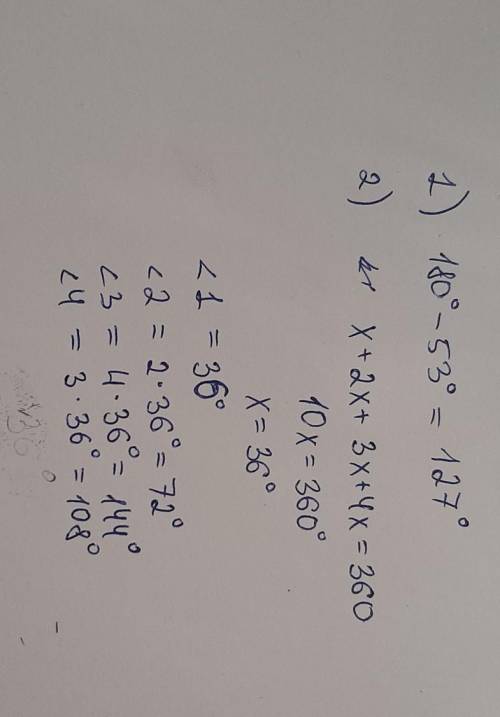 1) 180° - 53° = 127°
2) x + 2x + 3x + 4x = 360
10x = 360°
x = 36°
∠1 = 36°
∠2 = 2·36° = 72°
∠3 = 4·36° = 144°
∠4 = 3·36° = 108°